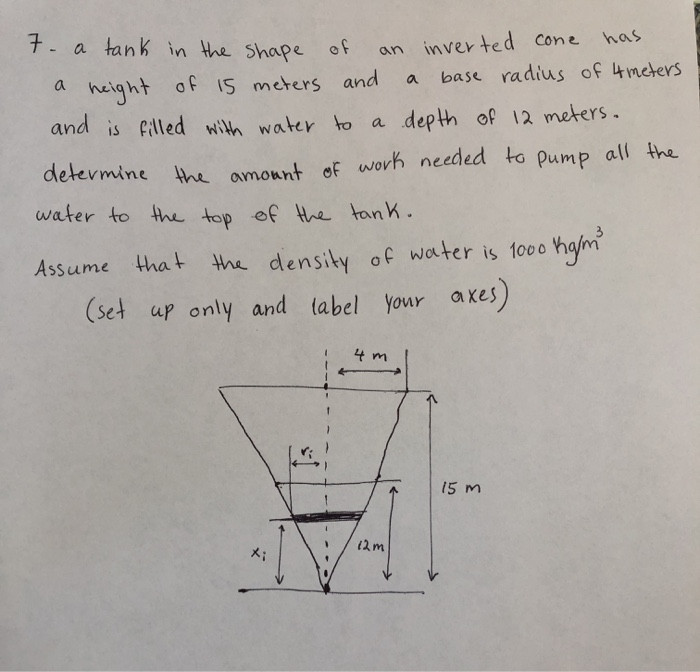 7- a tank in the shape of an inverted cone has
a height of 15 meters and a base radius of 4 meters
and is filled with water to a depth of 12 meters.
determine the amount of work needed to pump all the
water to the top of the tank.
Assume that the density of water is 1000 kg/m³
(set up only and label your axes)
4 m
ri
15 m
xi
12m